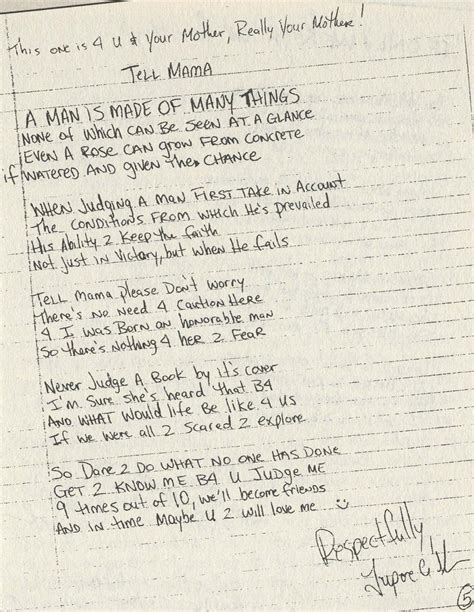 This one is 4 U & Your Mother, Really Your Mother!
TELL MAMA
A MAN IS MADE OF MANY THINGS
NONE OF WHICH CAN BE SEEN AT A GLANCE
EVEN A ROSE CAN GROW FROM CONCRETE
if WATERED AND GIVEN THE CHANCE
WHEN Judging A man FIRST TAKE in Account
The CONDITIONS FROM WHICH He's PREVAILED
His Ability 2 Keep the faith
Not just in Victory, but when He fails
TELL Mama please Don't worry
There's no Need 4 Caution Here
4 I was Born an honorable man
So there's Nothing 4 her 2 Fear
Never Judge A Book by it's cover
I'm Sure she's heard that B4
AND WHAT Would life Be like 4 US
If we were all 2 Scared 2 explore
So Dare 2 DO WHAT NO ONE HAS DONE
GET 2 KNOW ME B4 U Judge ME
9 times out of 10, we'll become friends
AND in time Maybe U 2 will love me
Respectfully
5